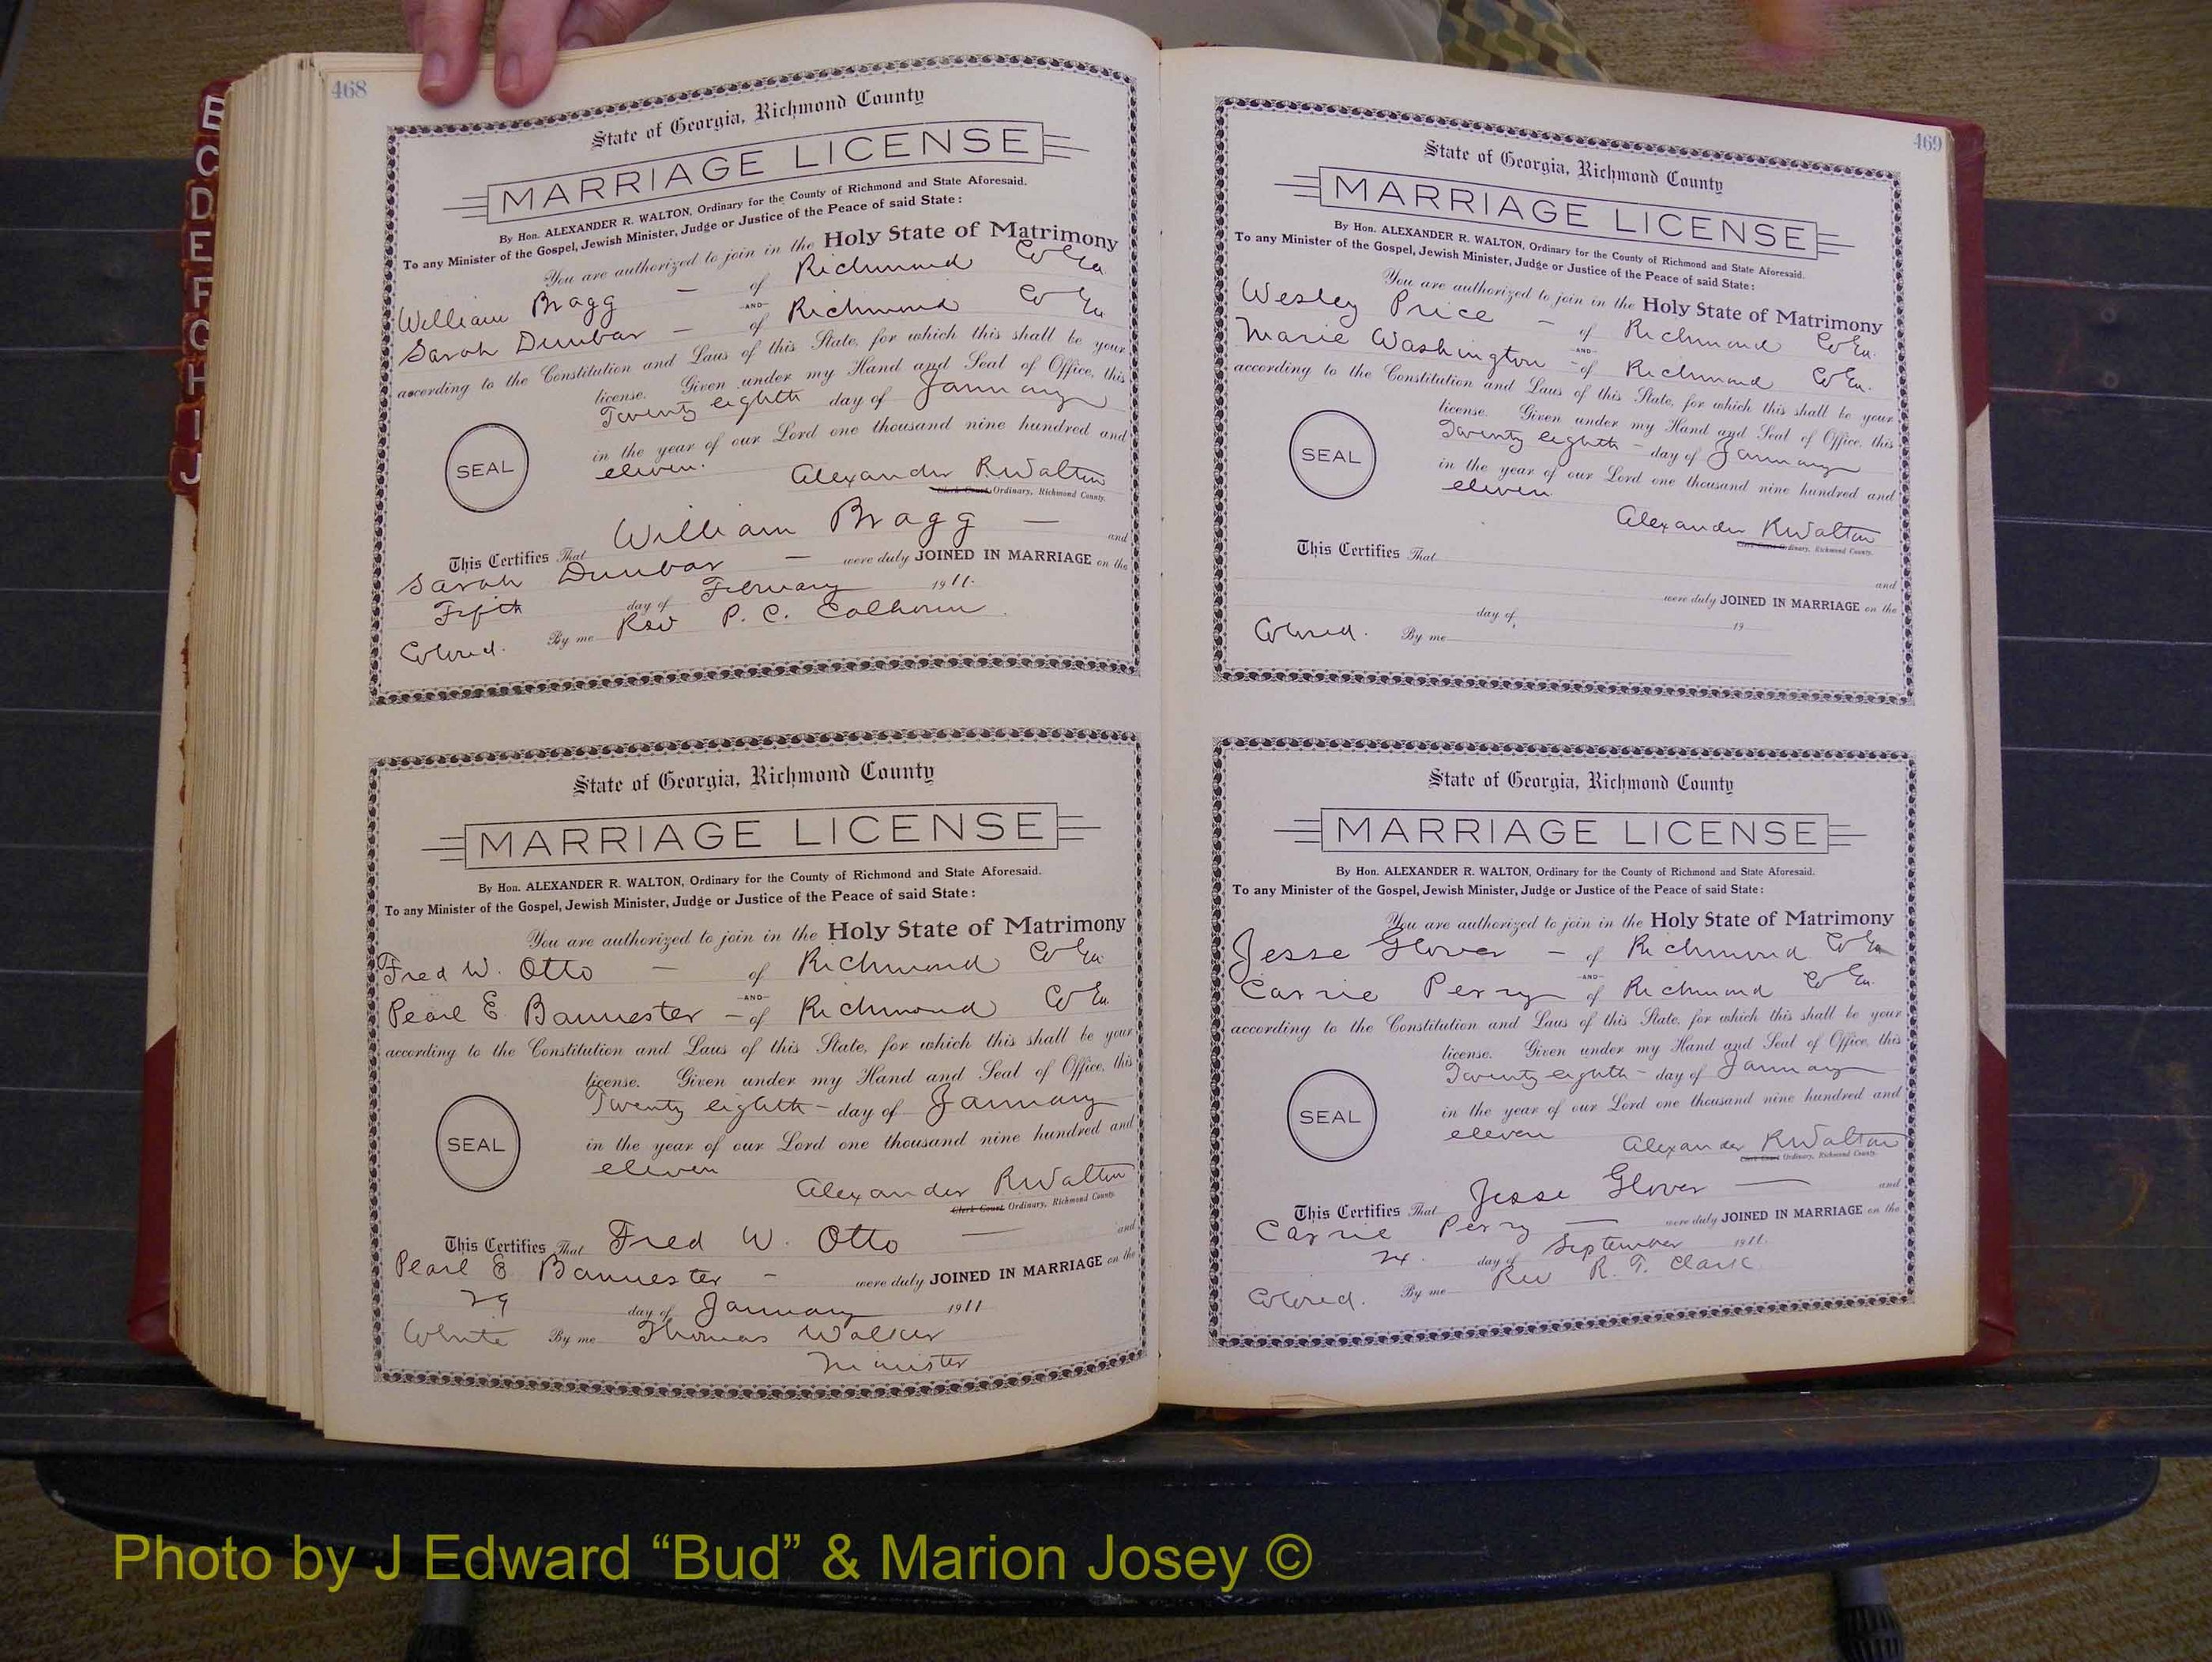 B
C
D
E
F
G
H
I
J
468
State of Georgia, Richmond County
MARRIAGE LICENSE
By Hon. ALEXANDER R. WALTON, Ordinary for the County of Richmond and State Aforesaid.
To any Minister of the Gospel, Jewish Minister, Judge or Justice of the Peace of said State:
You are authorized to join in the Holy State of Matrimony
William Bragg — of Richmond Co Ga
—AND—
Sarah Dunbar — of Richmond Co Ga
according to the Constitution and Laws of this State, for which this shall be your
license. Given under my Hand and Seal of Office, this
Twenty eighth day of January
in the year of our Lord one thousand nine hundred and
SEAL
eleven.
Alexander R Walton
Clerk Court Ordinary, Richmond County.
This Certifies That William Bragg — and
Sarah Dunbar — were duly JOINED IN MARRIAGE on the
Fifth day of February 1911.
Colored. By me Rev P. C. Calhoun
State of Georgia, Richmond County
MARRIAGE LICENSE
By Hon. ALEXANDER R. WALTON, Ordinary for the County of Richmond and State Aforesaid.
To any Minister of the Gospel, Jewish Minister, Judge or Justice of the Peace of said State:
You are authorized to join in the Holy State of Matrimony
Fred W. Otto — of Richmond Co Ga
—AND—
Pearl E Bannester — of Richmond Co Ga
according to the Constitution and Laws of this State, for which this shall be your
license. Given under my Hand and Seal of Office, this
Twenty eighth — day of January
in the year of our Lord one thousand nine hundred and
SEAL
eleven
Alexander R Walton
Clerk Court Ordinary, Richmond County
This Certifies That Fred W. Otto — and
Pearl E Bannester — were duly JOINED IN MARRIAGE on the
29 day of January 1911
White By me Thomas Walker
Minister
469
State of Georgia, Richmond County
MARRIAGE LICENSE
By Hon. ALEXANDER R. WALTON, Ordinary for the County of Richmond and State Aforesaid.
To any Minister of the Gospel, Jewish Minister, Judge or Justice of the Peace of said State:
You are authorized to join in the Holy State of Matrimony
Wesley Price — of Richmond Co Ga.
—AND—
Marie Washington — of Richmond Co Ga.
according to the Constitution and Laws of this State, for which this shall be your
license. Given under my Hand and Seal of Office, this
Twenty eighth — day of January
in the year of our Lord one thousand nine hundred and
SEAL
eleven
Alexander R Walton
Clerk Court Ordinary, Richmond County.
This Certifies That
and
were duly JOINED IN MARRIAGE on the
day of 19
Colored. By me
State of Georgia, Richmond County
MARRIAGE LICENSE
By Hon. ALEXANDER R. WALTON, Ordinary for the County of Richmond and State Aforesaid.
To any Minister of the Gospel, Jewish Minister, Judge or Justice of the Peace of said State:
You are authorized to join in the Holy State of Matrimony
Jesse Glover — of Richmond Co Ga
—AND—
Carrie Perry — of Richmond Co Ga.
according to the Constitution and Laws of this State, for which this shall be your
license. Given under my Hand and Seal of Office, this
Twenty eighth — day of January
in the year of our Lord one thousand nine hundred and
SEAL
eleven
Alexander R Walton
Clerk Court Ordinary, Richmond County.
This Certifies That Jesse Glover — and
Carrie Perry — were duly JOINED IN MARRIAGE on the
24. day of September 1911.
Colored. By me Rev R. T. Clark
Photo by J Edward “Bud” & Marion Josey ©